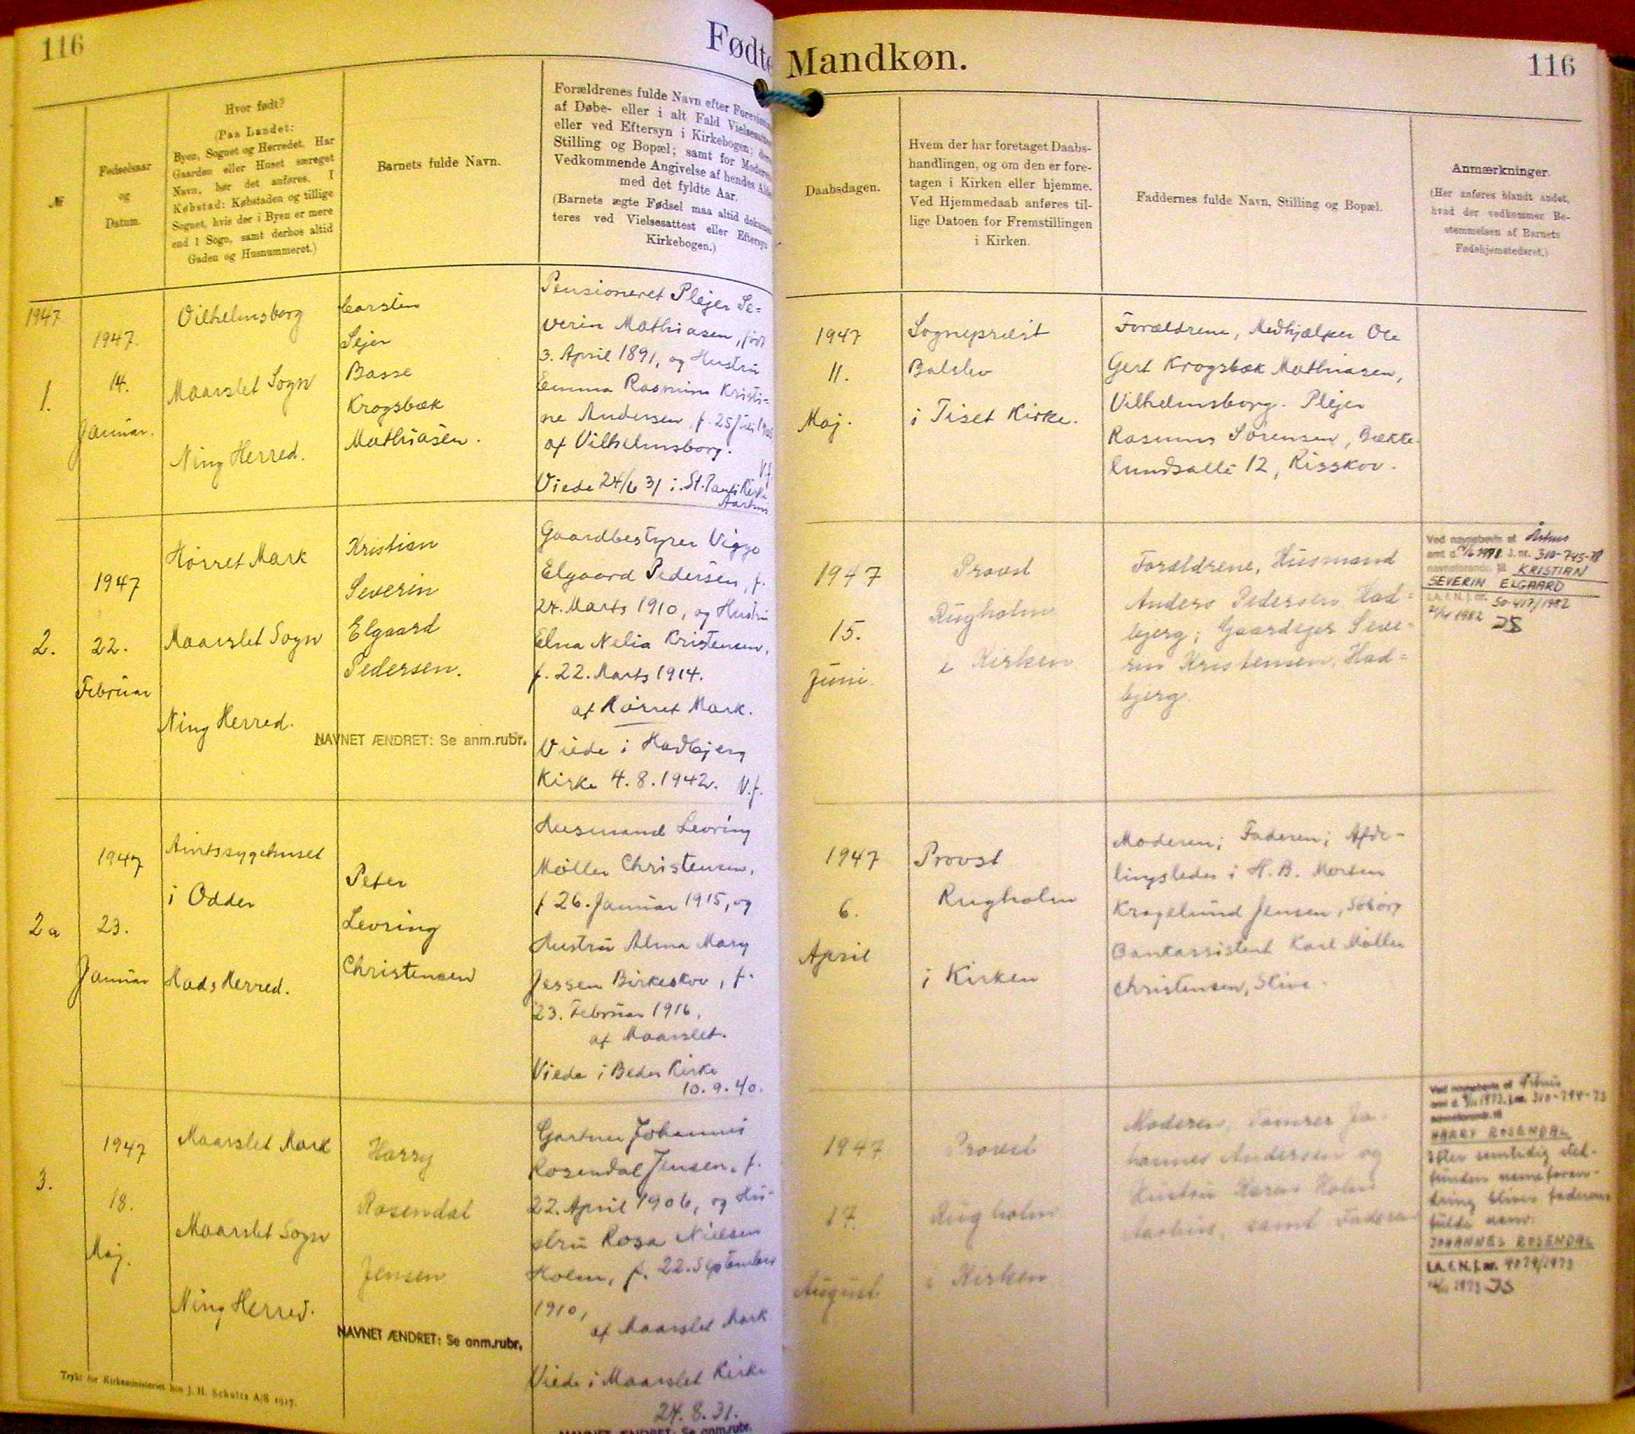 116
Fødte
Mandkøn.
116
№
Fødselsaar
og
Datum.
Hvor født?
(Paa Landet:
Byen, Sognet og Herredet. Har
Gaarden eller Huset særeget
Navn, bør det anføres. I
Købstad: Købstaden og tillige
Sognet, hvis der i Byen er mere
end 1 Sogn, samt derhos altid
Gaden og Husnummeret.)
Barnets fulde Navn.
Forældrenes fulde Navn efter
af Døbe- eller i alt Fald
eller ved Eftersyn i Kirkebogen;
Stilling og Bopæl; samt for
Vedkommende Angivelse af hendes
med det fyldte Aar.
(Barnets ægte Fødsel maa altid
teres ved Vielsesattest eller Eftersyn
Kirkebogen.)
Daabsdagen.
Hvem der har foretaget Daabs-
handlingen, og om den er fore-
tagen i Kirken eller hjemme.
Ved Hjemmedaab anføres til-
lige Datoen for Fremstillingen
i Kirken.
Faddernes fulde Navn, Stilling og Bopæl.
Anmærkninger.
(Her anføres blandt andet,
hvad der vedkommer Be-
stemmelsen af Barnets
Fødehjemstedsret.)
1947
1.
1947.
14.
Januar.
Vilhelmsborg
Maarslet Sogn
Ning Herred.
Carsten
Sejer
Basse
Krogsbæk
Mathiasen.
Pensioneret Plejer Se-
verin Mathiasen, født
3. April 1891, og Hustru
Emma Rasmine Kristi-
ne Andersen, f. 25
af Vilhelmsborg.
V.f.
Viede 24/6 31 i St. Pauls Kirke
Aarhus
1947
11.
Maj.
Sognepræst
Balslev
i Tiset Kirke.
Forældrene, Medhjælper Ole
Gert Krogsbæk Mathiasen,
Vilhelmsborg. Plejer
Rasmus Sørensen, Bække-
lundsalle 12, Risskov.
2.
1947
22.
Februar
Hørret Mark
Maarslet Sogn
Ning Herred.
Kristian
Severin
Elgaard
Pedersen.
NAVNET ÆNDRET: Se anm.rubr.
Gaardbestyrer Viggo
Elgaard Pedersen, f.
24. Marts 1910, og Hustru
Elna Nelia Kristensen,
f. 22. Marts 1914.
af Hørret Mark.
Viede i Hadbjerg
Kirke 4.8.1942. V.f.
1947
15.
Juni
Provst
Rugholm
i Kirken
Forældrene, Husmand
Anders Pedersen Had-
bjerg; Gaardejer Seve-
rin Kristensen, Had-
bjerg.
Ved navnebevis af Århus
amt d. 1981 J. nr. 310-745-
navneforandr. til KRISTIAN
SEVERIN ELGAARD
L.A. f. N. J. nr. 50-417/1982
1982 JS
2a
1947
23.
Januar
Amtssygehuset
i Odder
Hads Herred.
Peter
Levring
Christensen
Husmand Levring
Møller Christensen,
f 26. Januar 1915, og
Hustru Alma Mary
Jessen Birkeskov, f.
23. Februar 1916,
af Maarslet.
Viede i Beder Kirke
10.9.40.
1947
6.
April
Provst
Rugholm
i Kirken
Moderen; Faderen; Afde-
lingsleder i H.B. Morten
Kragelund Jensen, Søborg
Bankassistent Karl Møller
Christensen, Stive.
3.
1947
18.
Maj.
Maarslet Mark
Maarslet Sogn
Ning Herred.
Harry
Rosendal
Jensen
NAVNET ÆNDRET: Se anm.rubr.
Gartner Johannes
Rosendal Jensen, f.
22. April 1906, og Hu-
stru Rosa Nielsen
Holm, f. 22. September
1910,
af Maarslet Mark
Viede i Maarslet Kirke
24.8.31.
NAVNET ÆNDRET: Se anm.rubr.
1947
17.
August
Provst
Rugholm
i Kirken
Moderen, Tømrer Jo-
hannes Andersen og
Hustru Karen Holm
Aarhus, samt Faderen
Ved navnebevis af Århus
amt d. 1973 J. nr. 310-794-73
navneforandr. til
HARRY ROSENDAL
Efter samtidig sted-
funden navneforan-
dring bliver faderens
fulde navn:
JOHANNES ROSENDAL
L.A. f. N. J. nr. 4079/1973
1973 JS
Trykt for Kirkeministeriet hos J. H. Schultz A/S 1917.